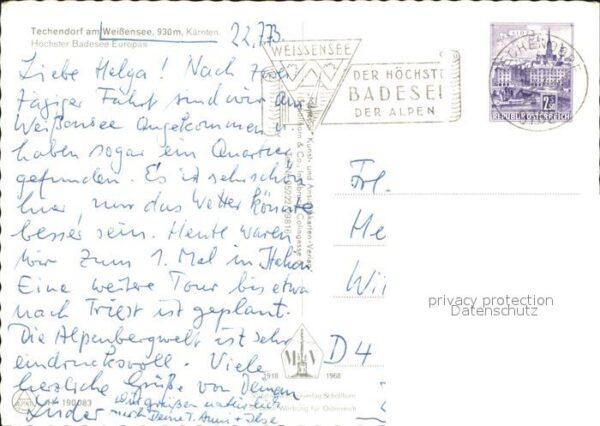 Techendorf am Weißensee, 930 m, Kärnten.
Höchster Badesee Europas
22.7.73.
WEISSENSEE
DER HÖCHSTE
BADESEE
DER ALPEN
2S
REPUBLIK ÖSTERREICH
Liebe Helga! Nach
tägiger Fahrt sind wir am
Weißensee angekommen u.
haben sogar ein Quartier
gefunden. Es ist sehr schön
hier, nur das Wetter könnte
besser sein. Heute waren
wir zum 1. Mal in Italien
Eine weitere Tour bis etwa
nach Triest ist geplant.
Die Alpenbergwelt ist sehr
eindrucksvoll. Viele
herzliche Grüße von Deinem
Lüder
wir grüßen natürlich
auch Deine T. Anni + Ilse
Frl.
He
Wi
D 4
privacy protection
Datenschutz
1918
1968
190083
Werbung für Österreich